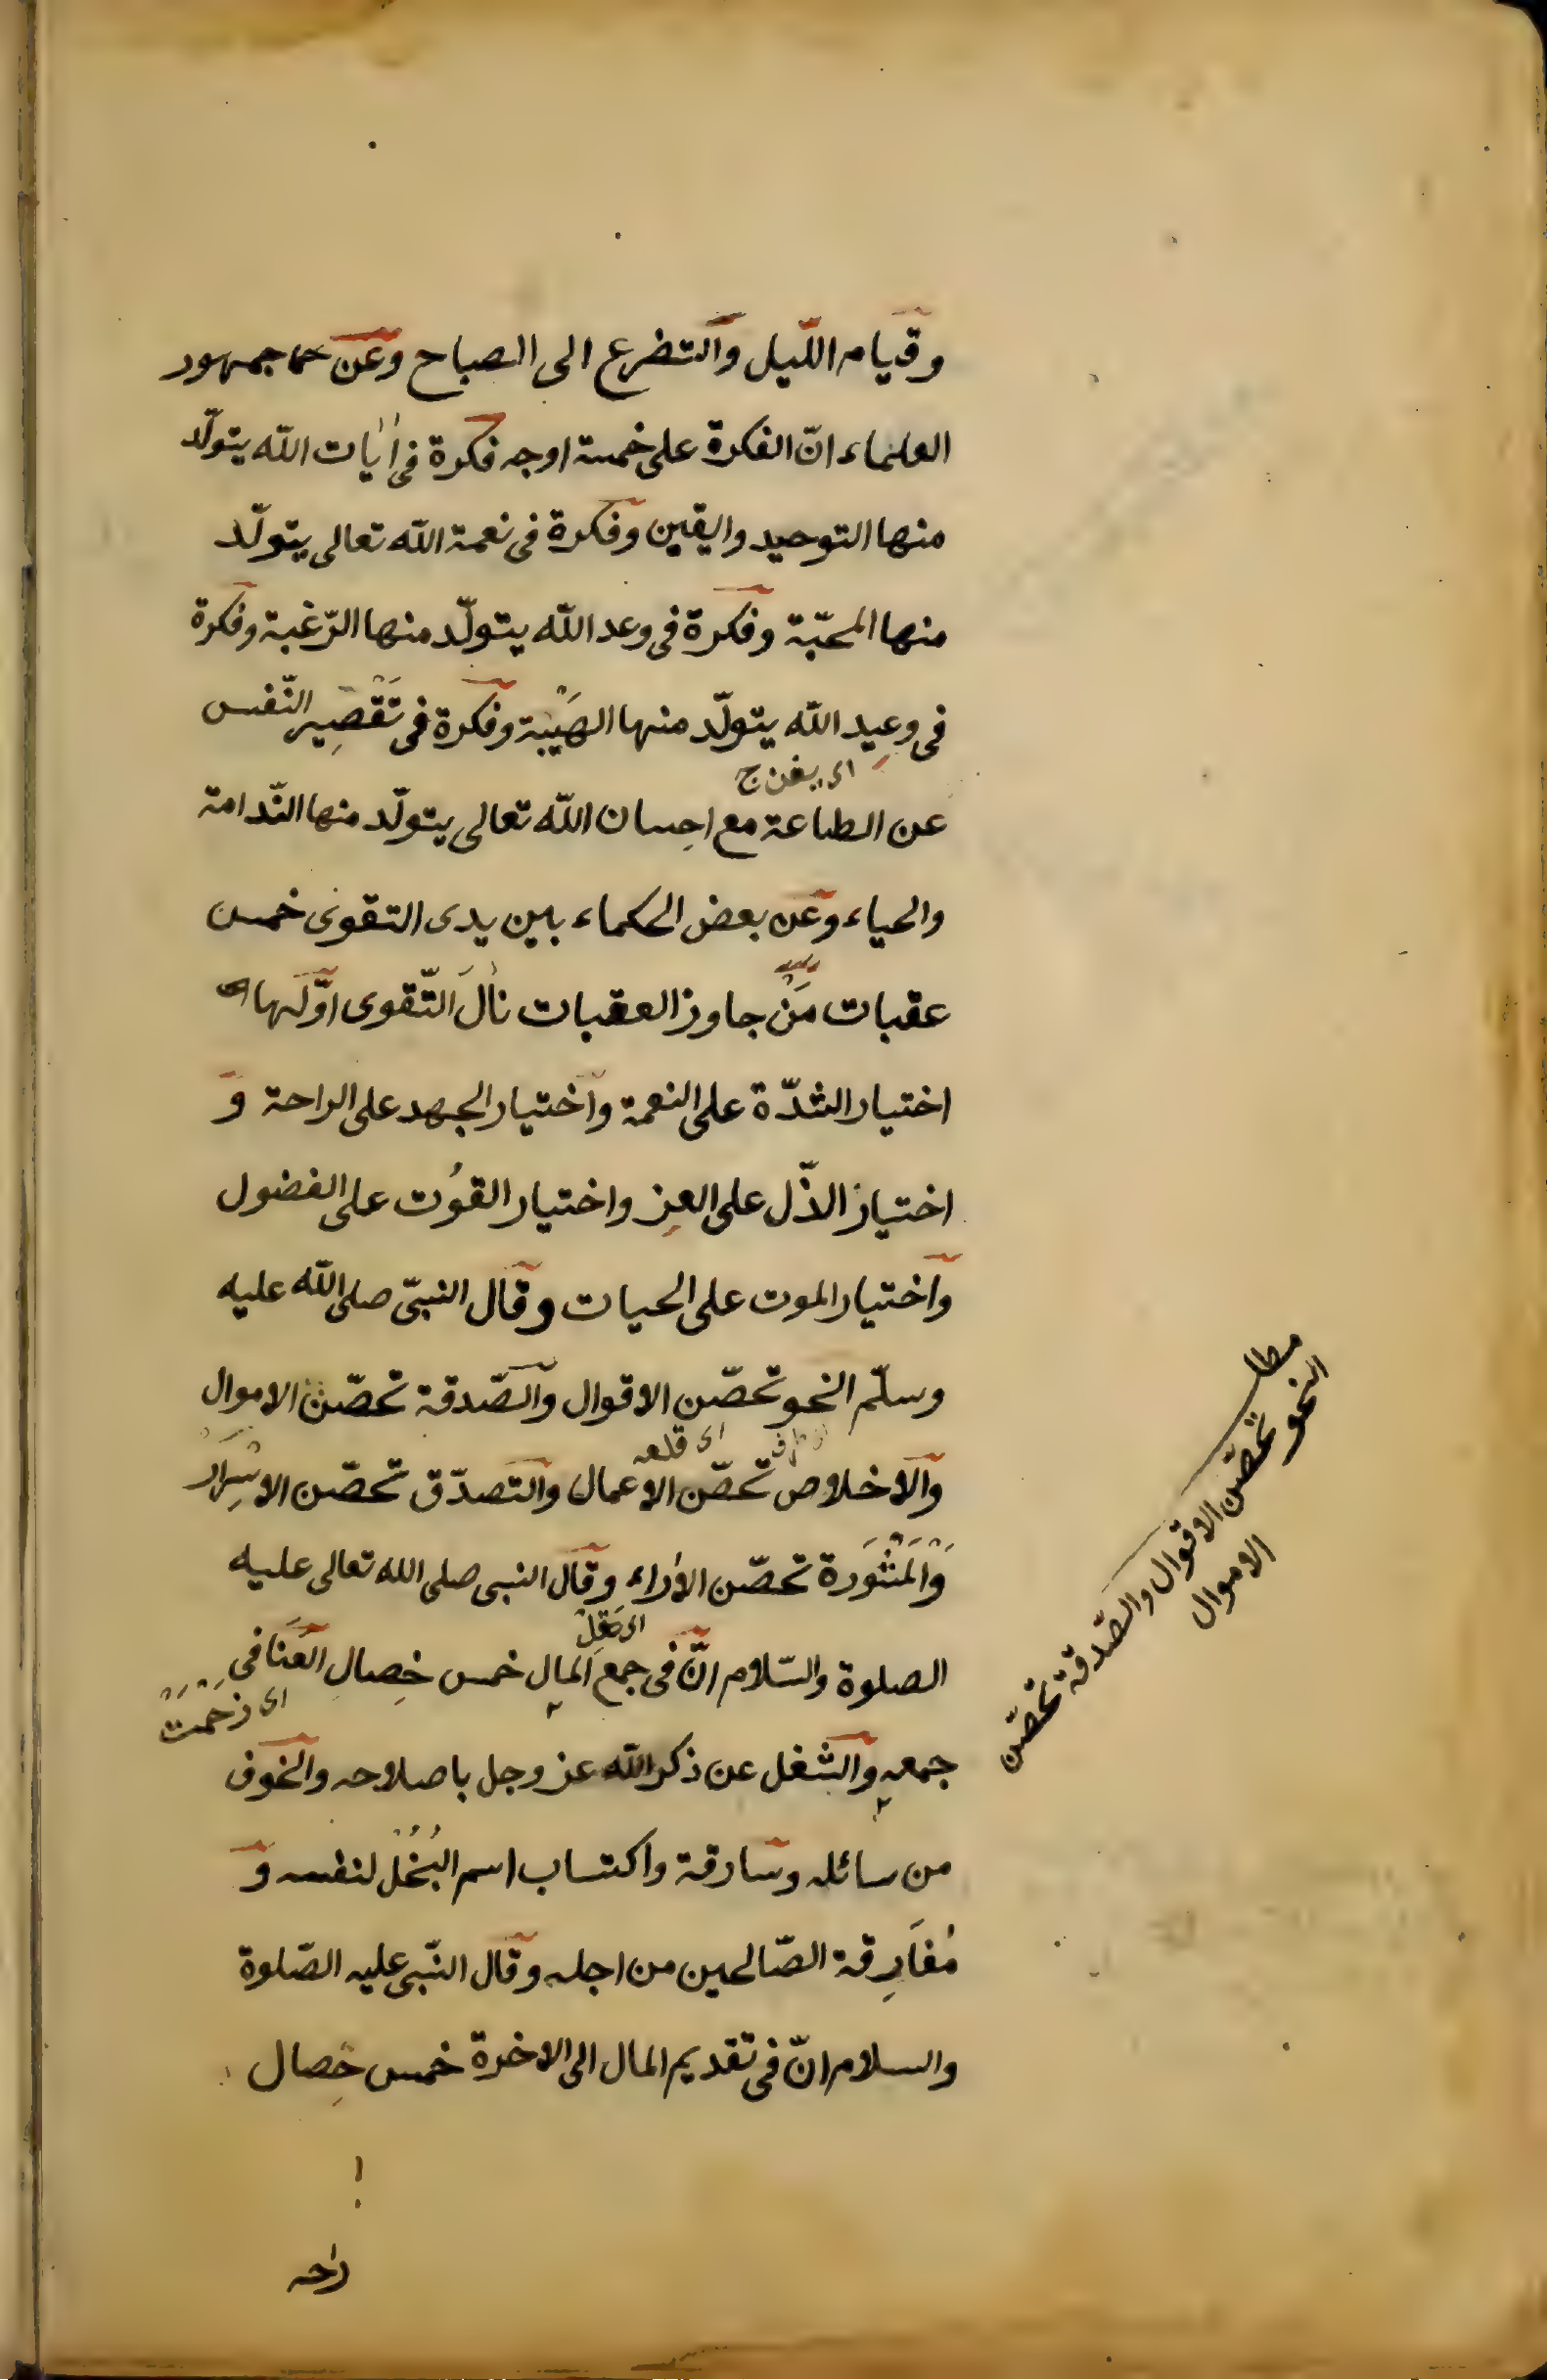 وقيام اللّيل والتضرع الى الصباح وعن جمهور
العلماء انّ الفكرة على خمسة اوجه فكرة فى اٰيات الله يتولّد
منها التوحيد واليقين وفكرة فى نعمة الله تعالى يتولّد
منها المحبّة وفكرة فى وعد الله يتولّد منها الرّغبة وفكرة
فى وعِيد الله يتولّد منها الهَيْبة وفكرة فى تَقْصِير النّفس
عن الطاعة مع احِسان الله تعالى يتولّد منها النّدامة
والحياء وعن بعض الحكماء بين يدى التقوى خمس
عقبات مَنْ جاوز العقبات نالَ التّقوى اوّلَها
اختيار الشدّة على النعمة واختيار الجهد على الراحة و
اختيار الذّل على العِز واختيار القوُت على الفضول
واختيار الموت على الحيات وقال النبىّ صلى الله عليه
وسلّم النحو تحصّن الاقوال والصّدقة تحصّن الاموال
اى قلعه
والاخلاص تحصّن الاعمال والتصدّق تحصّن الاسْرَار
وَالْمَشْوَرة تحصّن الاٰراء وقال النبى صلى الله تعالى عليه
الصلوة والسّلام انّ فى جمع المال خمس خِصالِ العَنَا فى
اى زَحْمَتْ
جمعهِ والشغل عن ذكر الله عز وجل باصلاحه والخوف
من سائله وسارقة واكتساب اسم البُخُل لنفسه و
مُفاَرِقة الصّالحين من اجله وقال النّبى عليه الصّلوة
والسلام انّ فى تقديم المال الى الاخرة خمس خِصال
راحه
مطلب
النحو تحصّن الاقوال والصّدقة تحصّن
الاموال